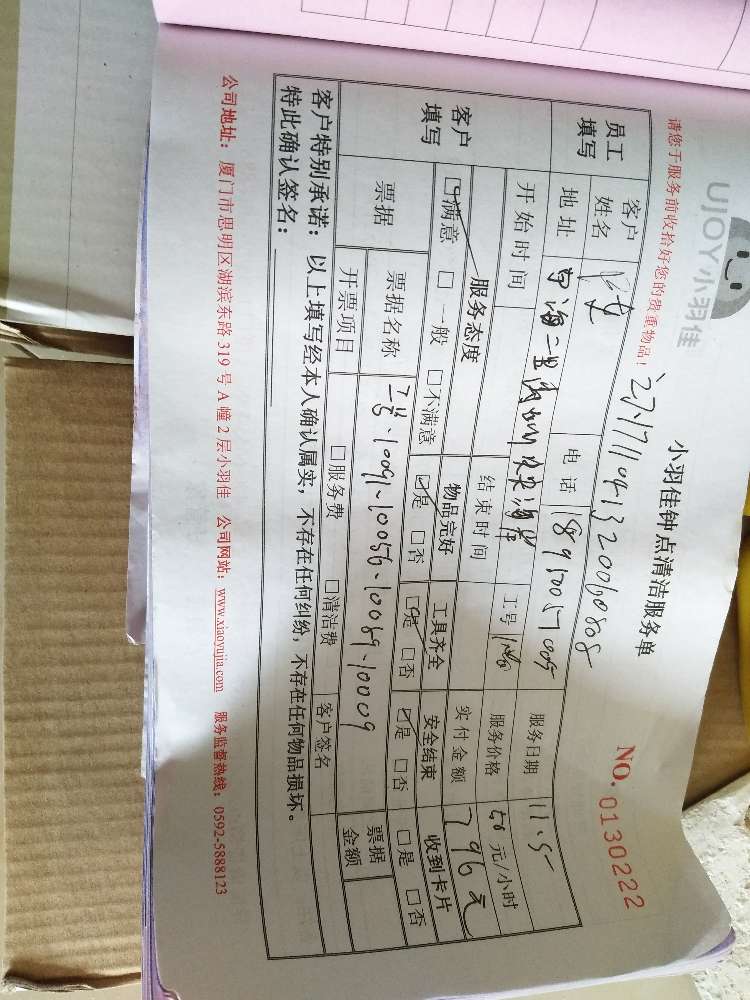 UJOY小羽佳
小羽佳钟点清洁服务单
NO. 0130222
请您于服务前收拾好您的贵重物品!
员工填写
客户姓名
电话
服务日期 11.5
地址
工号
服务价格 50元/小时
开始时间
结束时间
实付金额 796元
客户填写
服务态度 物品完好 工具齐全 安全结束 收到卡片
☑满意 □一般 □不满意 ☑是 □否 ☑是 □否 ☑是 □否 □是 □否
票据 票据名称 10091-10056-10089-10009 票据金额
开票项目 □服务费 □清洁费 客户签名
客户特别承诺:以上填写经本人确认属实,不存在任何纠纷,不存在任何物品损坏。
特此确认签名:
公司地址:厦门市思明区湖滨东路319号A幢2层小羽佳 公司网站:www.xiaoyujia.com 服务监督热线:0592-5888123